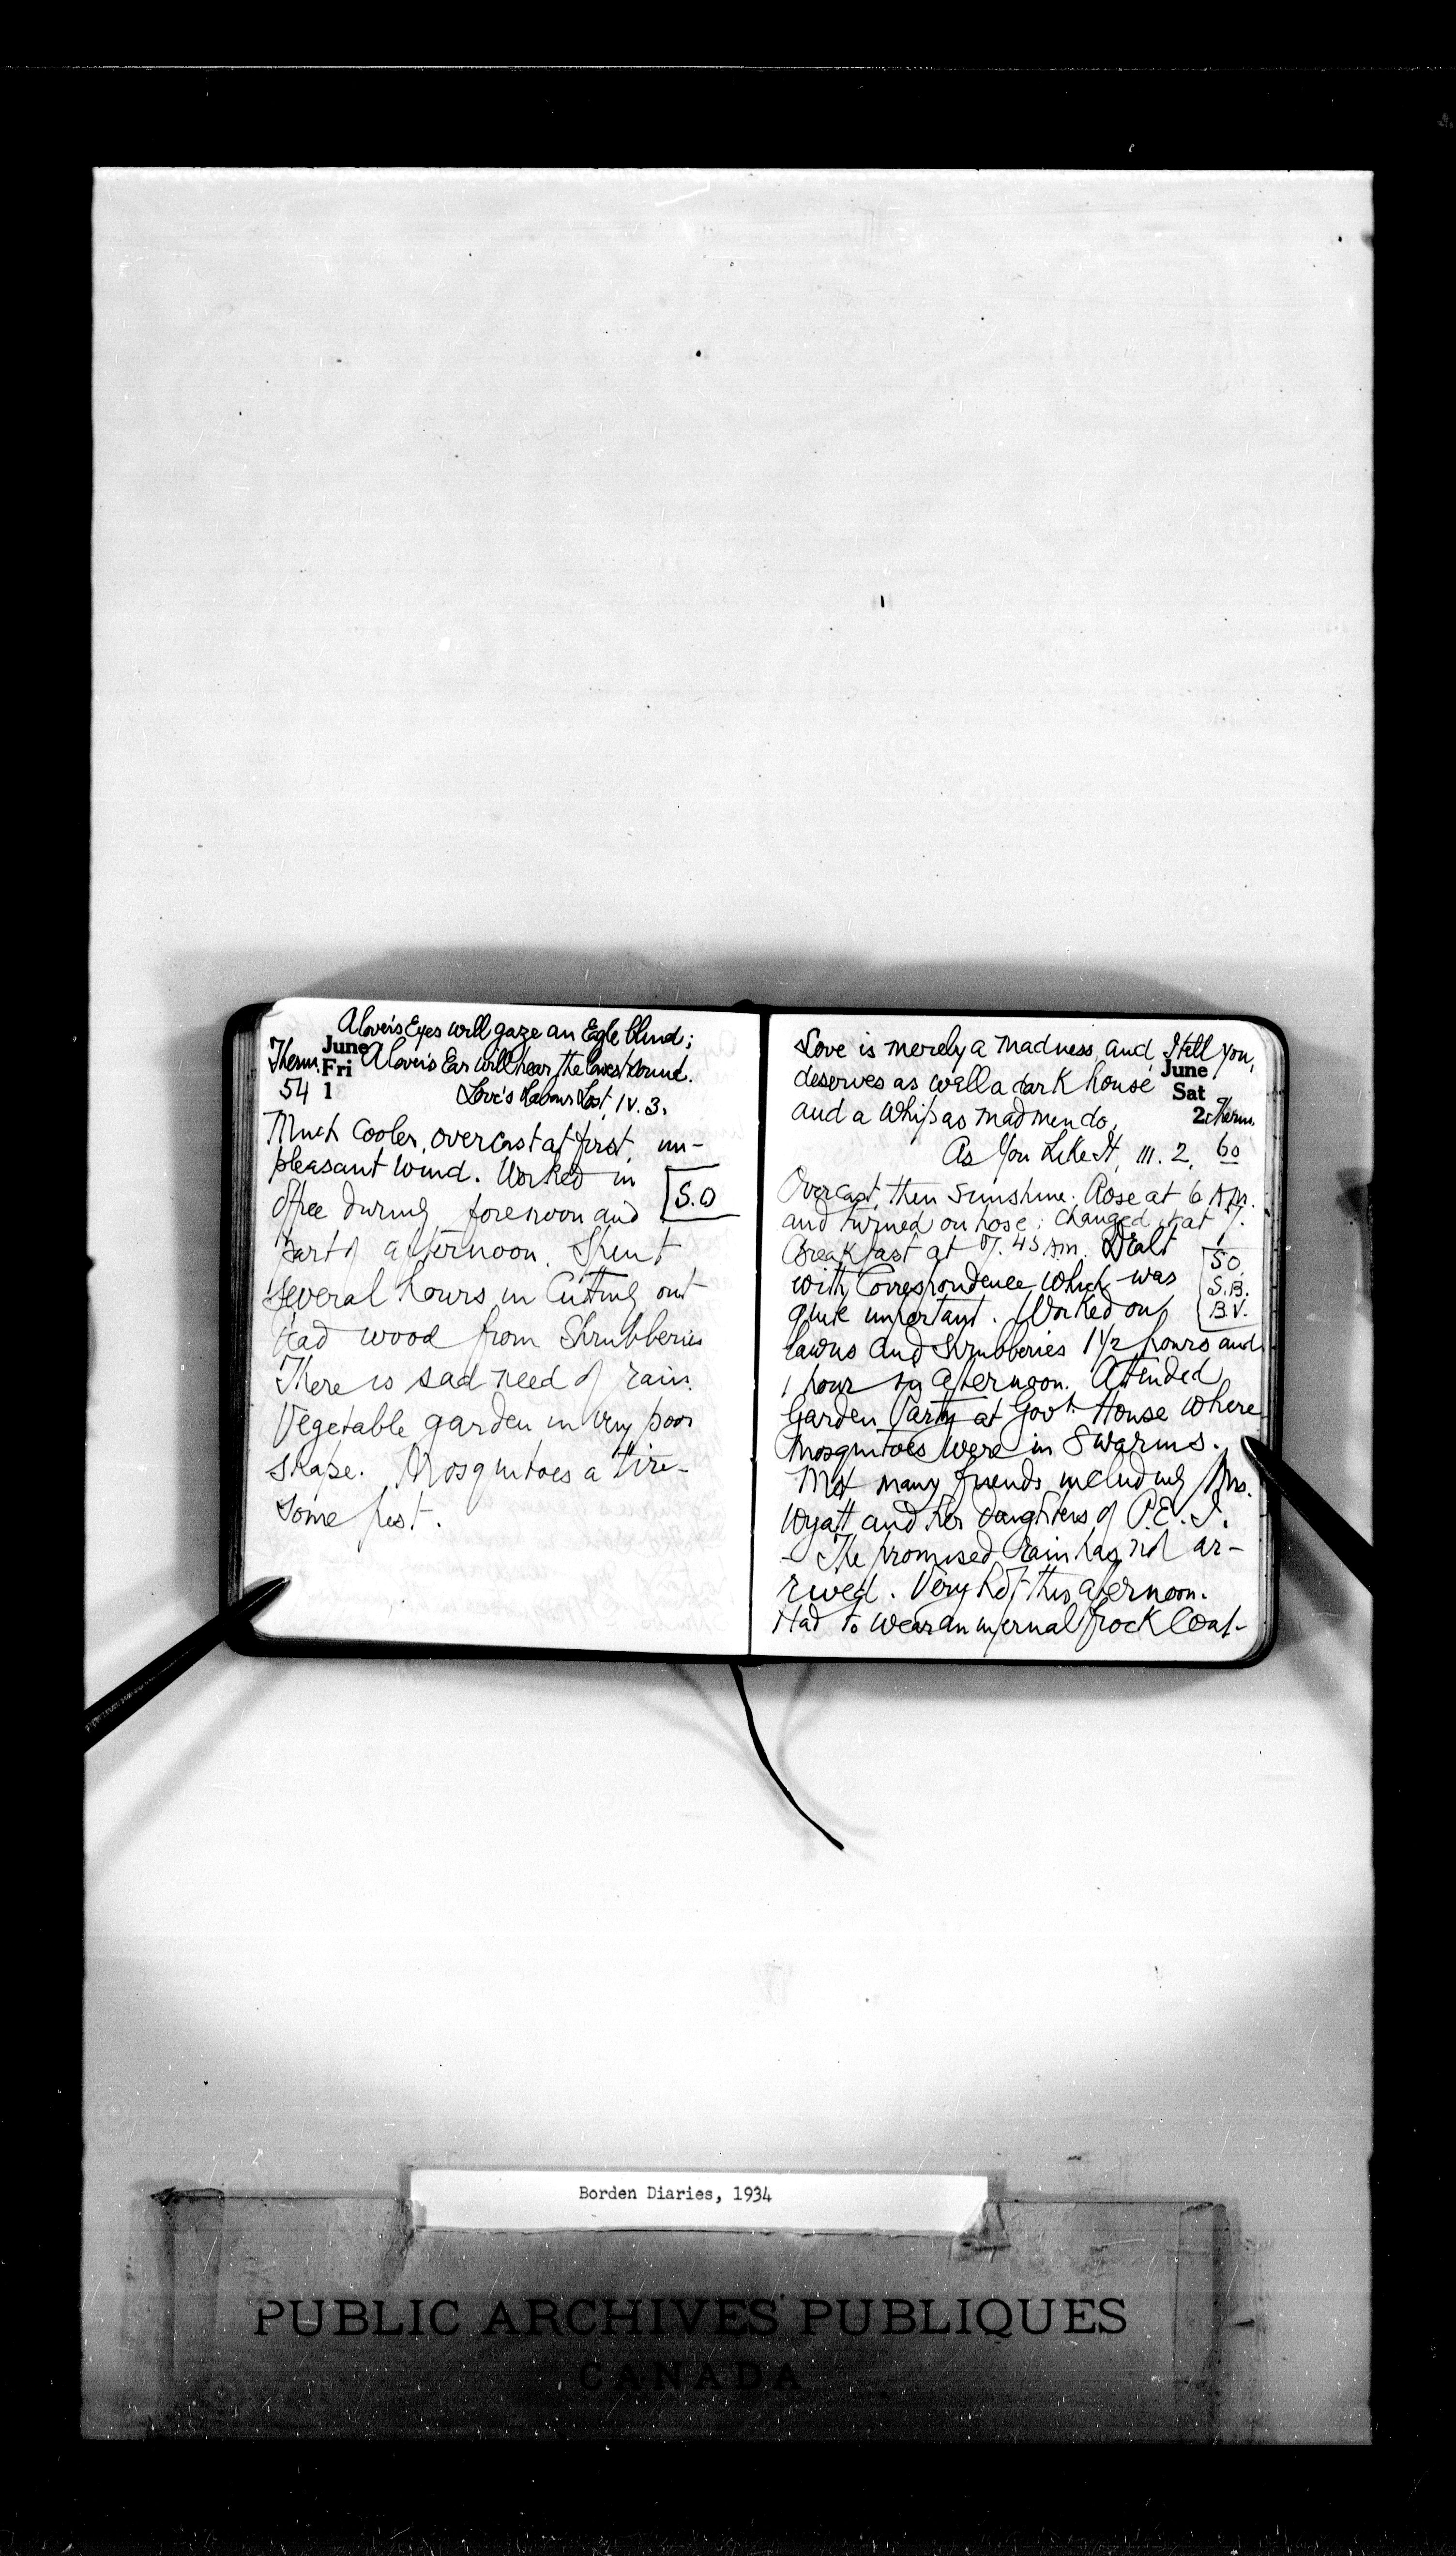 A lover's Eyes will gaze an Egle blind;
June
Therm. Fri A lover's Ear will hear the lowest sound.
54 1
Love's Labour Lost, IV. 3.
Much cooler, overcast at first, un-
pleasant wind. Worked in
S.O
office during forenoon and
part of afternoon. Spent
several hours in cutting out
dead wood from Shrubberies
There is sad need of rain.
Vegetable garden in very poor
shape. Mosquitoes a tire-
some pest.
Love is merely a madness, and, I tell you,
June
deserves as well a dark house
Sat
and a whip as madmen do,
2 Therm.
As You Like It, III. 2. 60
Overcast, then sunshine. Rose at 6 A.M.
and turned on hose; changed it at 7.
Breakfast at 7.45 A.M. Dealt
S.O.
with Correspondence which was
S.B.
quite important. Worked on
B.V.
lawns and Shrubberies 1 1/2 hours and
1 hour in afternoon. Attended
Garden Party at Govt. House where
mosquitoes were in swarms.
Met many friends including Mrs.
Wyatt and her daughters of P.E.I.
- The promised rain has not ar-
rived. Very hot this afternoon.
Had to wear an infernal frock Coat-
Borden Diaries, 1934
PUBLIC ARCHIVES PUBLIQUES
CANADA